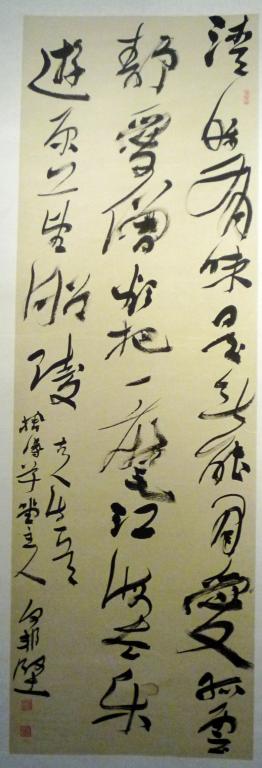 清時有味是無能閒愛孤雲
靜愛僧欲把一麾江海去樂
遊原上望昭陵
古人
草堂主人